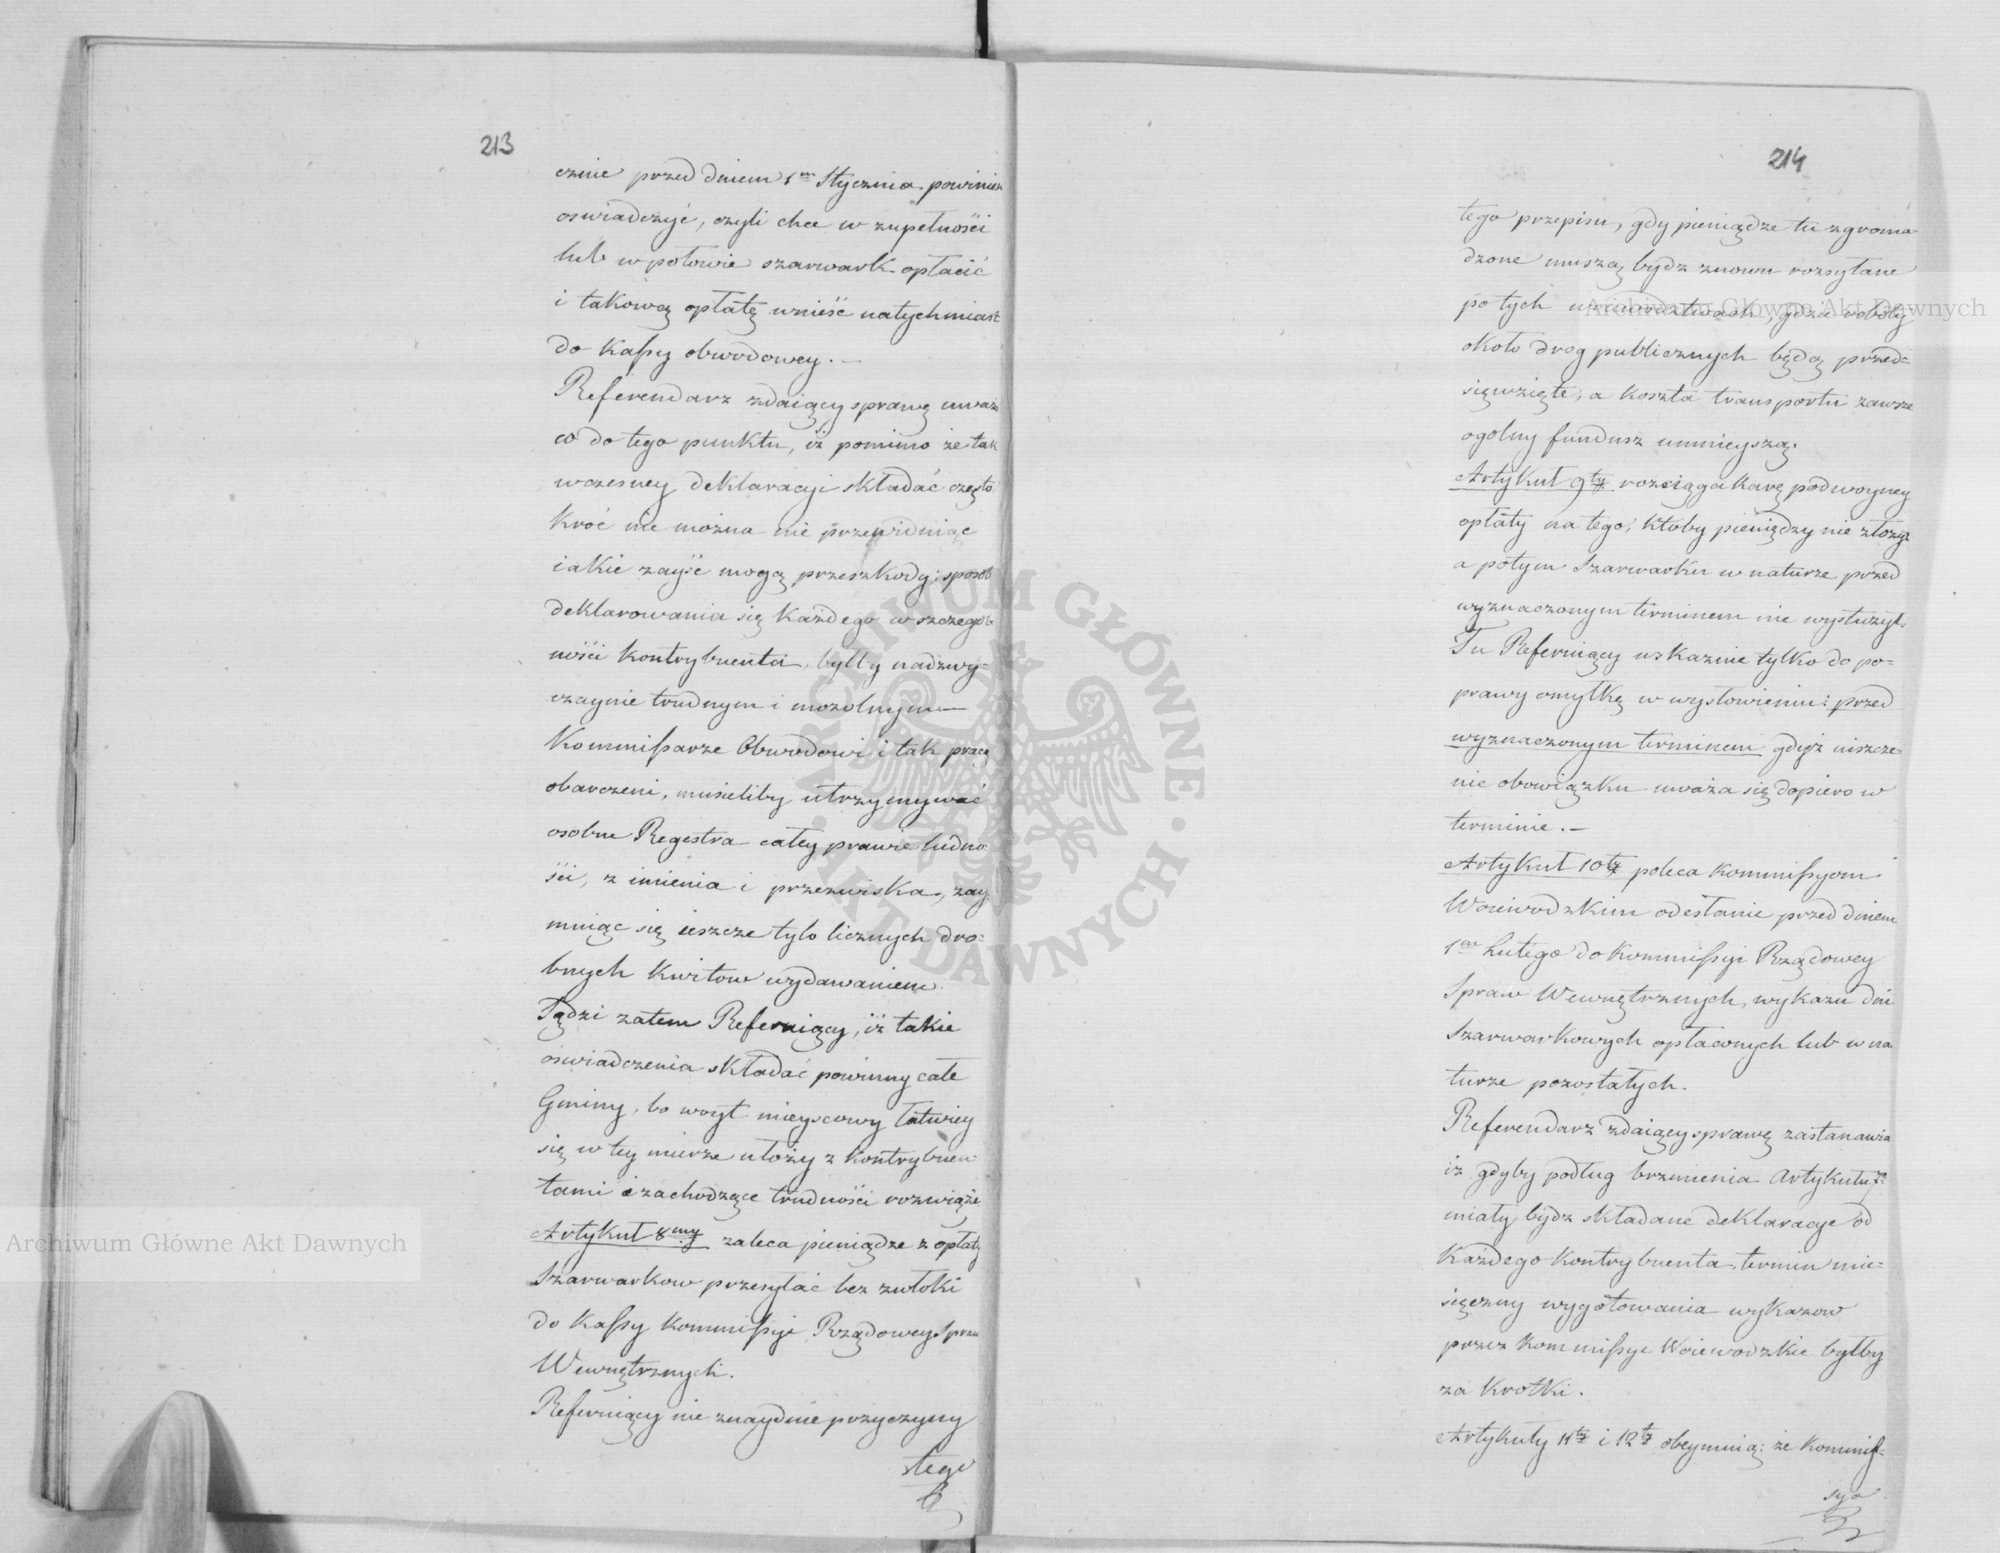 213
cznie przed dniem 1ᵐ Stycznia powinien
oswiadczyć, czyli chce w zupełności
lub w połowie szarwark opłacić
i takową opłatę wnieść natychmiast
do Kassy obwodowey. —
Referendarz zdaiący sprawę uważa
co do tego punktu, iż pomimo że tak
wczesney deklaracyi składać często
kroć nie można nie przewiduiąc
iakie zayść mogą przeszkody: sposob
deklarowania się każdego w szczegol-
ności kontrybuenta, byłby nadzwy-
czaynie trudnym i mozolnym —
Kommissarze Obwodowi i tak pracą
obarczeni, musieliby utrzymywać
osobne Regestra całey prawie ludno-
ści, z imienia i przezwiska, zay
muiąc się ieszcze tylo licznych dro-
bnych kwitow wydawaniem.
Sądzi zatem Referuiący, iż takie
oświadczenia składać powinny całe
Gminy, bo woyt mieyscowy łatwiey
się w tey mierze ułoży z kontrybuen
tami i zachodzące trudności rozwiąże
Artykuł 8ᵐʸ zaleca pieniądze z opłaty
Szarwarkow przesyłać bez zwłoki
do Kassy Kommissyi Rządowey Spraw
Wewnętrznych.
Referuiący nie znayduie przyczyny
tego
214
tego przepisu, gdy pieniądze tu zgroma-
dzone muszą bydz znowu rozsyłane
po tych woiewodztwach, gdzie roboty
około drog publicznych będą przed-
sięwzięte; a koszta transportu zawsze
ogolny fundusz umnieyszą.
Artykuł 9ᵗʸ rozciąga karę podwoyney
opłaty na tego, ktoby pieniędzy nie złożył
a potym Szarwarku w naturze przed
wyznaczonym terminem nie wysłużył.
Tu Referuiący wskazuie tylko do po-
prawy omyłkę w wysłowieniu: przed
wyznaczonym terminem gdyż niszcze-
nie obowiązku uważa się dopiero w
terminie. —
Artykuł 10ᵗʸ poleca Kommissyom
Woiewodzkim odesłanie przed dniem
1ᵐ Lutego do Kommissyi Rządowey
Spraw Wewnętrznych, wykazu dni
Szarwarkowych opłaconych lub w na
turze pozostałych.
Referendarz zdaiący sprawę zastanawia
iż gdyby podług brzmienia Artykułu 7ᵍᵒ
miały bydz składane deklaracye od
każdego kontrybuenta, termin mie-
sięczny wygotowania wykazow
przez Kommissye Woiewodzkie byłby
za krotki.
Artykuły 11ᵗʸ i 12ᵗʸ obeymuią: że Kommis-
sya
Archiwum Główne Akt Dawnych
Archiwum Główne Akt Dawnych
ARCHIWUM GŁÓWNE · AKT DAWNYCH ·